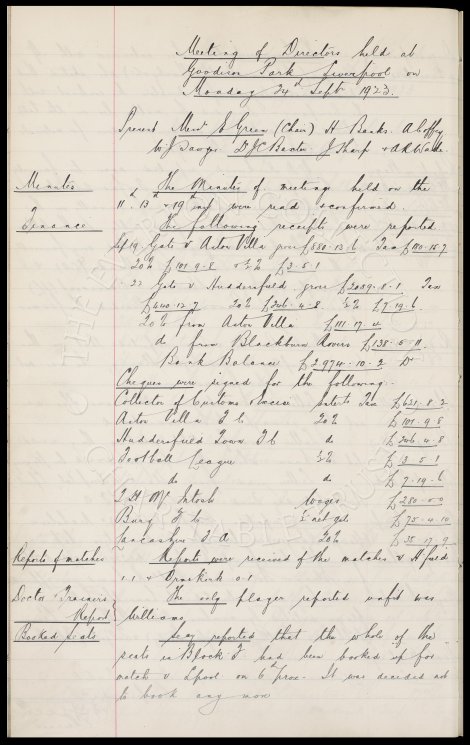 Meeting of Directors held at
Goodison Park Liverpool on
Monday 24th Sept 1923.
Present Messrs E Green (Chair) H Banks. A Coffey
W J Sawyer Dr J C Baxter J Sharp & A R Wade
Minutes
The Minutes of meetings held on the
11th 13th & 19th inst were read & confirmed.
Finance
The following receipts were reported
Sep 19 Gate v Aston Villa gross £580.13.6 Tax
20% £101.9.8 ½% £3.5.1
" 22 Gate v Huddersfield gross £2059.8.1 Tax
£440.12.7 20% £246.4.8 ½% £7.19.6
20% from Aston Villa £111.17.4
do from Blackburn Rovers £138.5.11
Bank Balance £2974.10.2 Dr
Cheques were signed for the following:-
Collector of Customs & Excise Entert. Tax £621.8.2
Aston Villa F C 20% £101.9.8
Huddersfield Town F C do £246.4.8
Football League ½% £3.5.1
do do £7.19.6
T H McIntosh Wages £280.0.0
Bury F C ½ net gate £75.4.10
Lancashire F A 20% £35.17.9
Reports of matches
Reports were received of the matches v H'field
1.1 v Ormskirk 0.1
Doctor & Trainers
Report
The only player reported unfit was
Williams
Booked Seats
Secy reported that the whole of the
seats in Block F had been booked up for
match v L'pool on 6th prox. It was decided not
to book any more